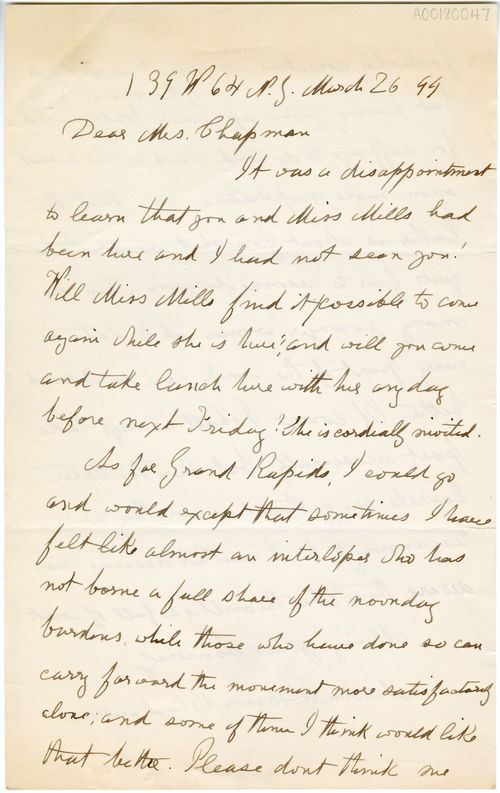 A00180047
139 W 64 N.Y. March 26 99
Dear Mrs. Chapman
It was a disappointment
to learn that you and Miss Mills had
been here and I had not seen you!
Will Miss Mills find it possible to come
again while she is here; and will you come
and take lunch here with her any day
before next Friday? She is cordially invited.
As for Grand Rapids, I could go
and would except that sometimes I have
felt like almost an interloper who has
not borne a full share of the noonday
burdens, while those who have done so can
carry forward the movement more satisfactorily
alone; and some of them I think would like
that better. Please dont think me